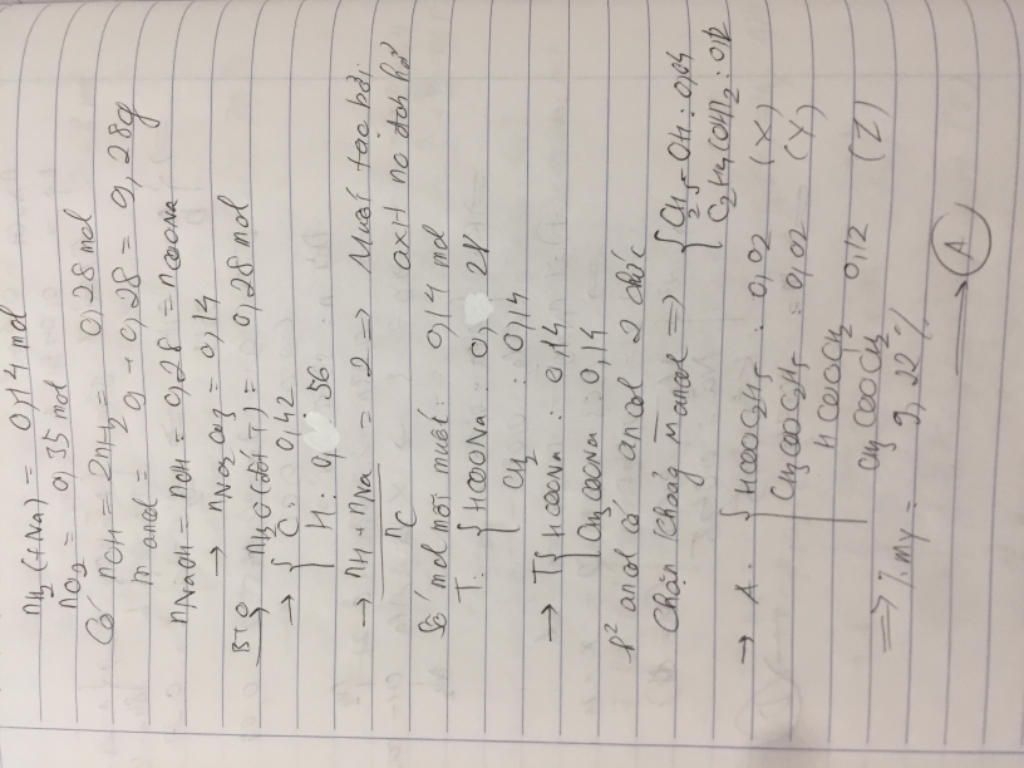 nH2 (+Na) = 0,14 mol
nO2 = 0,35 mol
Có nOH = 2nH2 = 0,28 mol
m ancol = 9 + 0,28 = 9,28g
nNaOH = nOH = 0,28 = nCOONa
→ nNa2CO3 = 0,14
BTO → nH2O (đốt T) = 0,28 mol
→ { C: 0,42
H: 0,56
→ nH + nNa / nC = 2 => Muối tạo bởi
axit no đơn hở
Số mol mỗi muối: 0,14 mol
T: { HCOONa: 0, 28
CH2: 0,14
→ T { HCOONa: 0,14
CH3COONa 0,14
ancol có ancol 2 chức
Chặn khoảng M ancol => { C2H5OH: 0,04
C2H4(OH)2: 0,12
→ A: { HCOOC2H5: 0,02 (X)
CH3COOC2H5: 0,02 (Y)
HCOOCH2
CH3COOCH2 0,12 (Z)
=> %mY = 9,22%
→ A